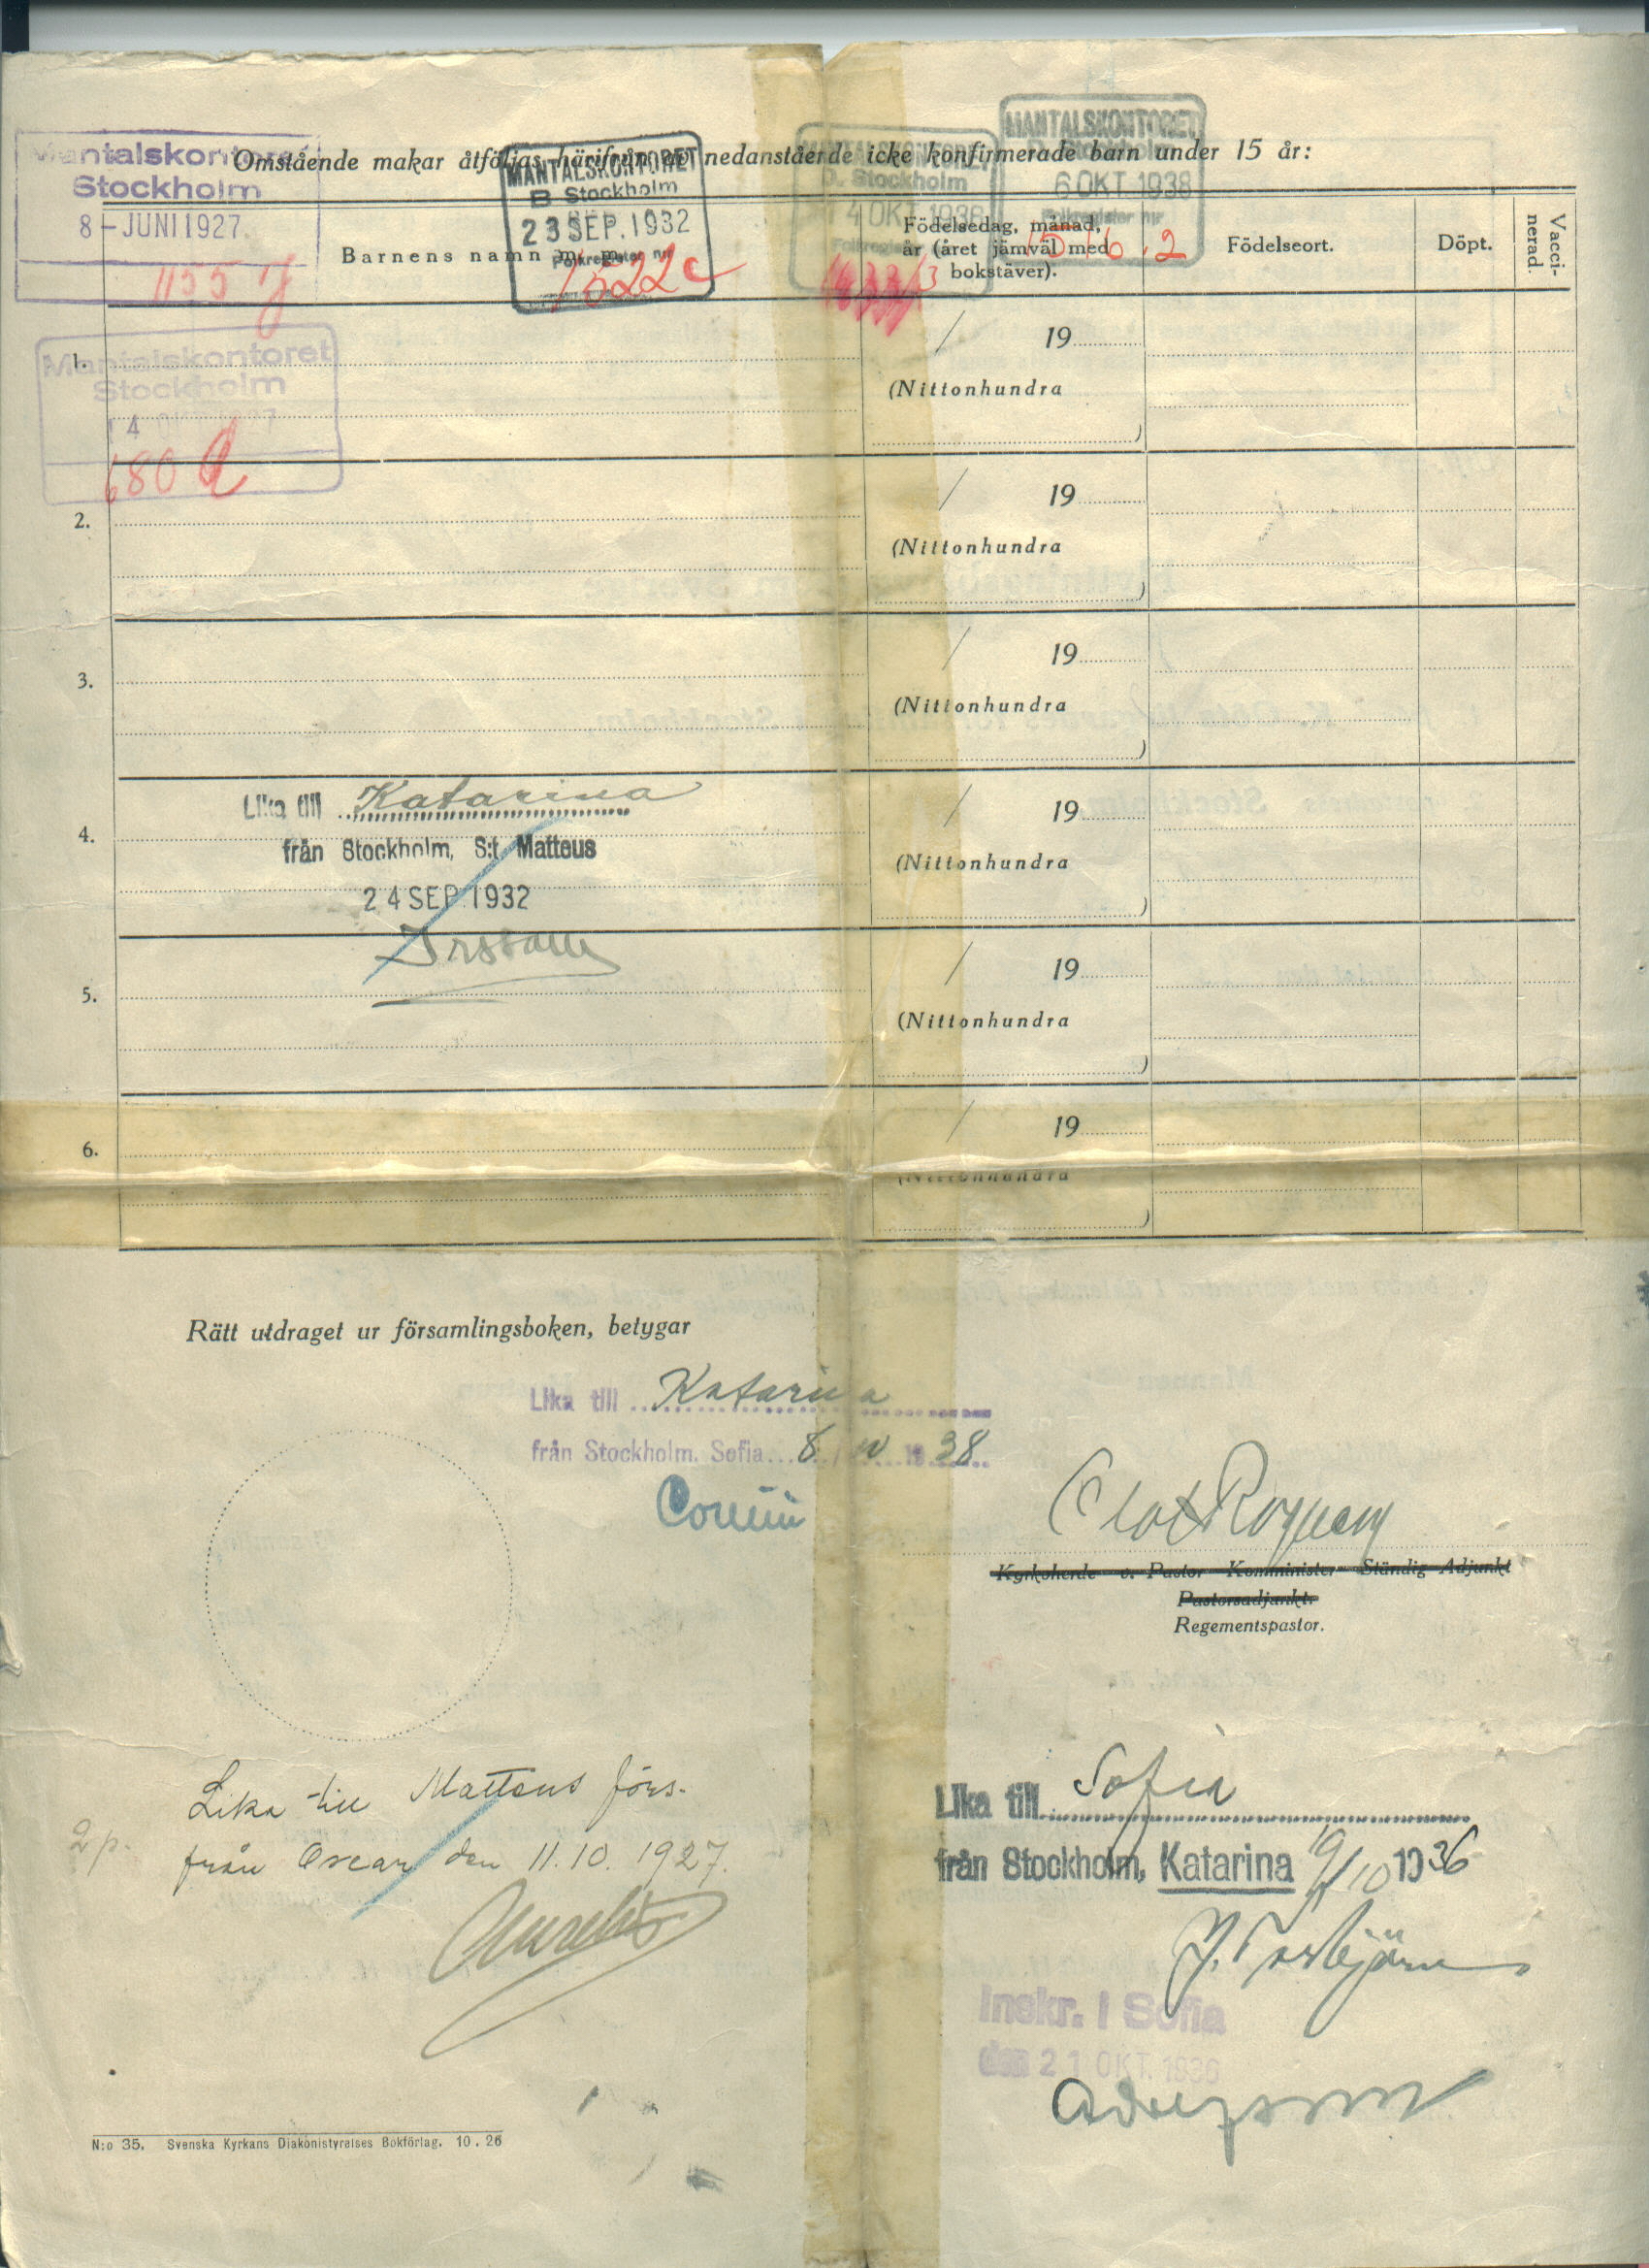 Mantalskontoret
Stockholm
8-JUNI1927.
1155 y
MANTALSKONTORET
B Stockholm
23 SEP. 1932
Folkregister nr
1522 c
D. Stockholm
4 OKT 1936
Folkregister nr
MANTALSKONTORET
Stockholm
6 OKT 1938
Folkregister nr
1516.2
Omstående makar åtföljas härifrån av nedanstående icke konfirmerade barn under 15 år:
Barnens namn m. m.
Födelsedag, månad,
år (året jämväl med
bokstäver).
Födelseort.
Döpt.
Vacci-
nerad.
Mantalskontoret
Stockholm
680 d
1.
/ 19
(Nittonhundra
)
2.
/ 19
(Nittonhundra
)
3.
/ 19
(Nittonhundra
)
Lika till Katarina
4.
från Stockholm, S:t Matteus
24 SEP. 1932
/ 19
(Nittonhundra
)
5.
/ 19
(Nittonhundra
)
6.
/ 19
(Nittonhundra
)
Rätt utdraget ur församlingsboken, betygar
Lika till Katarina
från Stockholm. Sofia 8/10 1938
Kyrkoherde v. Pastor Komminister Ständig Adjunkt
Pastorsadjunkt.
Regementspastor.
Lika till Matteus förs.
2 p.
från Oscar den 11.10.1927.
Lika till Sofia
från Stockholm, Katarina 19/10 1936
Y. Torbjörn
Inskr. i Sofia
den 21 OKT. 1936
N:o 35. Svenska Kyrkans Diakonistyrelses Bokförlag. 10.26